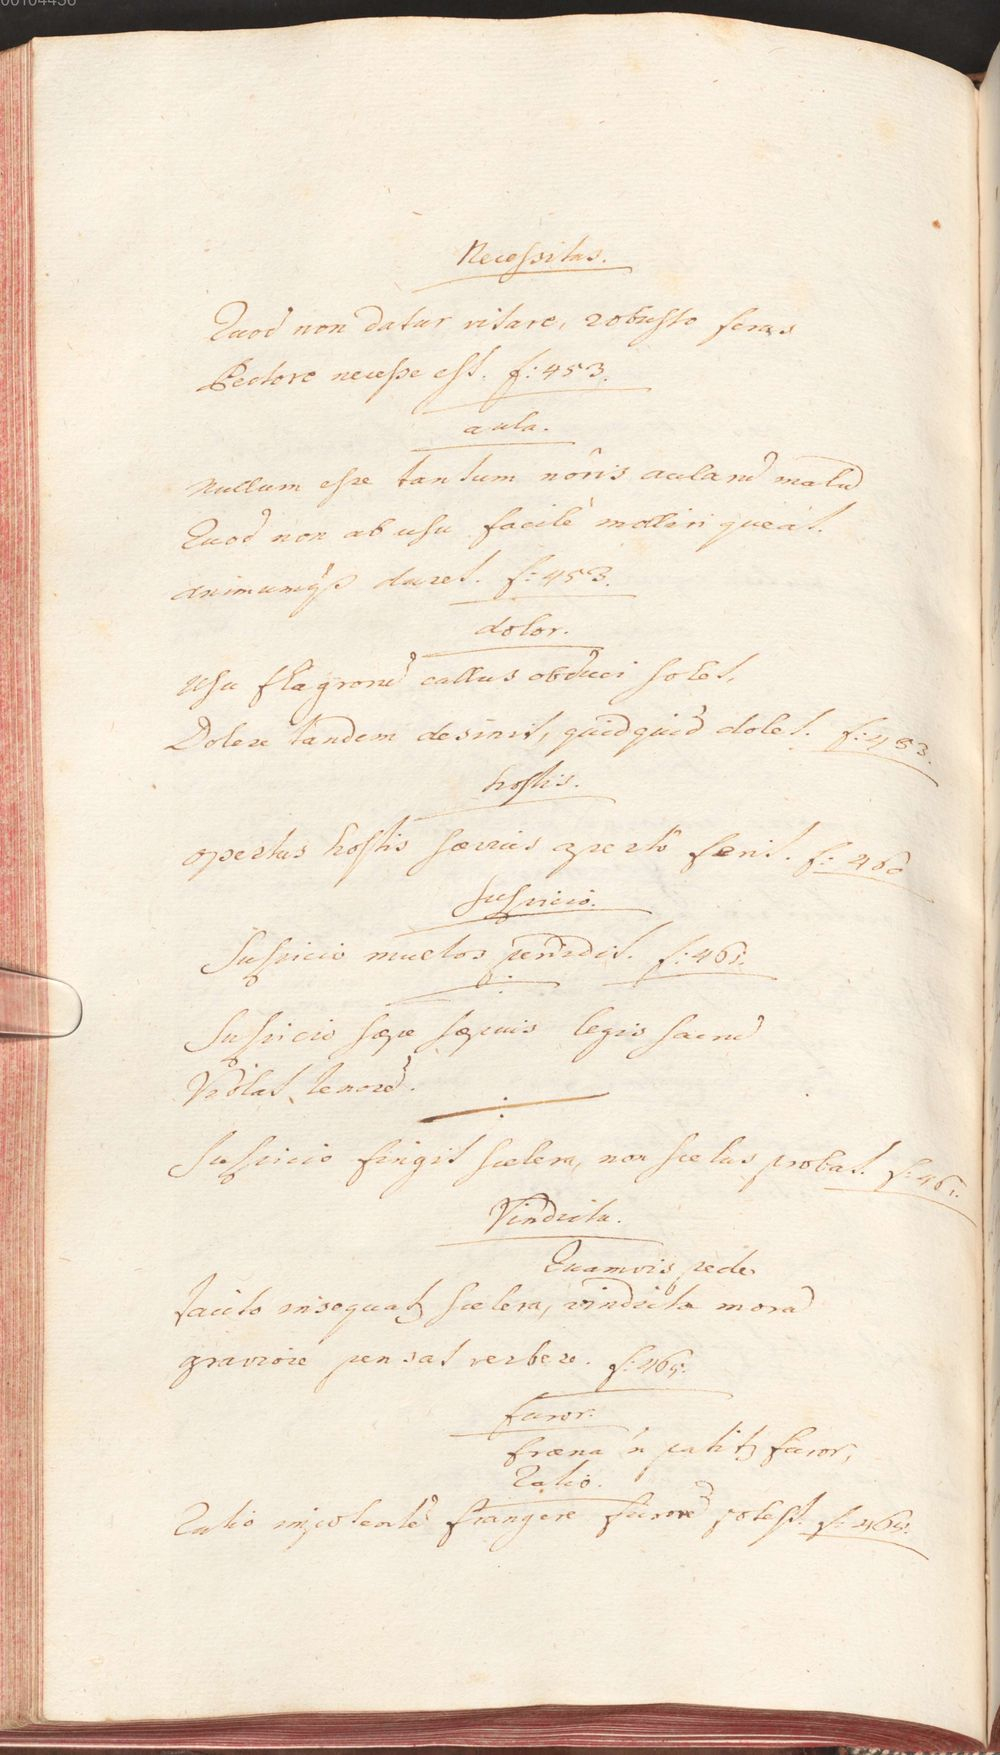 00104436
Necessitas.
Quod non datur vitare, robusto feras
Pectore necesse est. f: 453.
aula.
Nullum esse tantum nôris aularũ malũ
Quod non ab usu facilè molliri queat.
animumq̃ duret. f: 453.
dolor.
Usu flagronũ callus obduci solet,
Dolere tandem desinit, quidquid dolet. f: 453.
hostis.
opertus hostis sævius aperto ferit. f: 460
Suspicio.
Suspicio multos perdidit. f: 461.
Suspicio sæpe sæpius legis sacrũ
Violat tenorẽ.
Suspicio fingit scelera, non scelus probat. f: 461.
Vindicta.
Quamvis pede
tacito insequatʒ scelera, vindicta morã
graviore pensat verbere. f: 465.
furor.
fræna ñ patitʒ furor,
Ratio.
Ratio insolentẽ frangere furorẽ potest. f: 465.